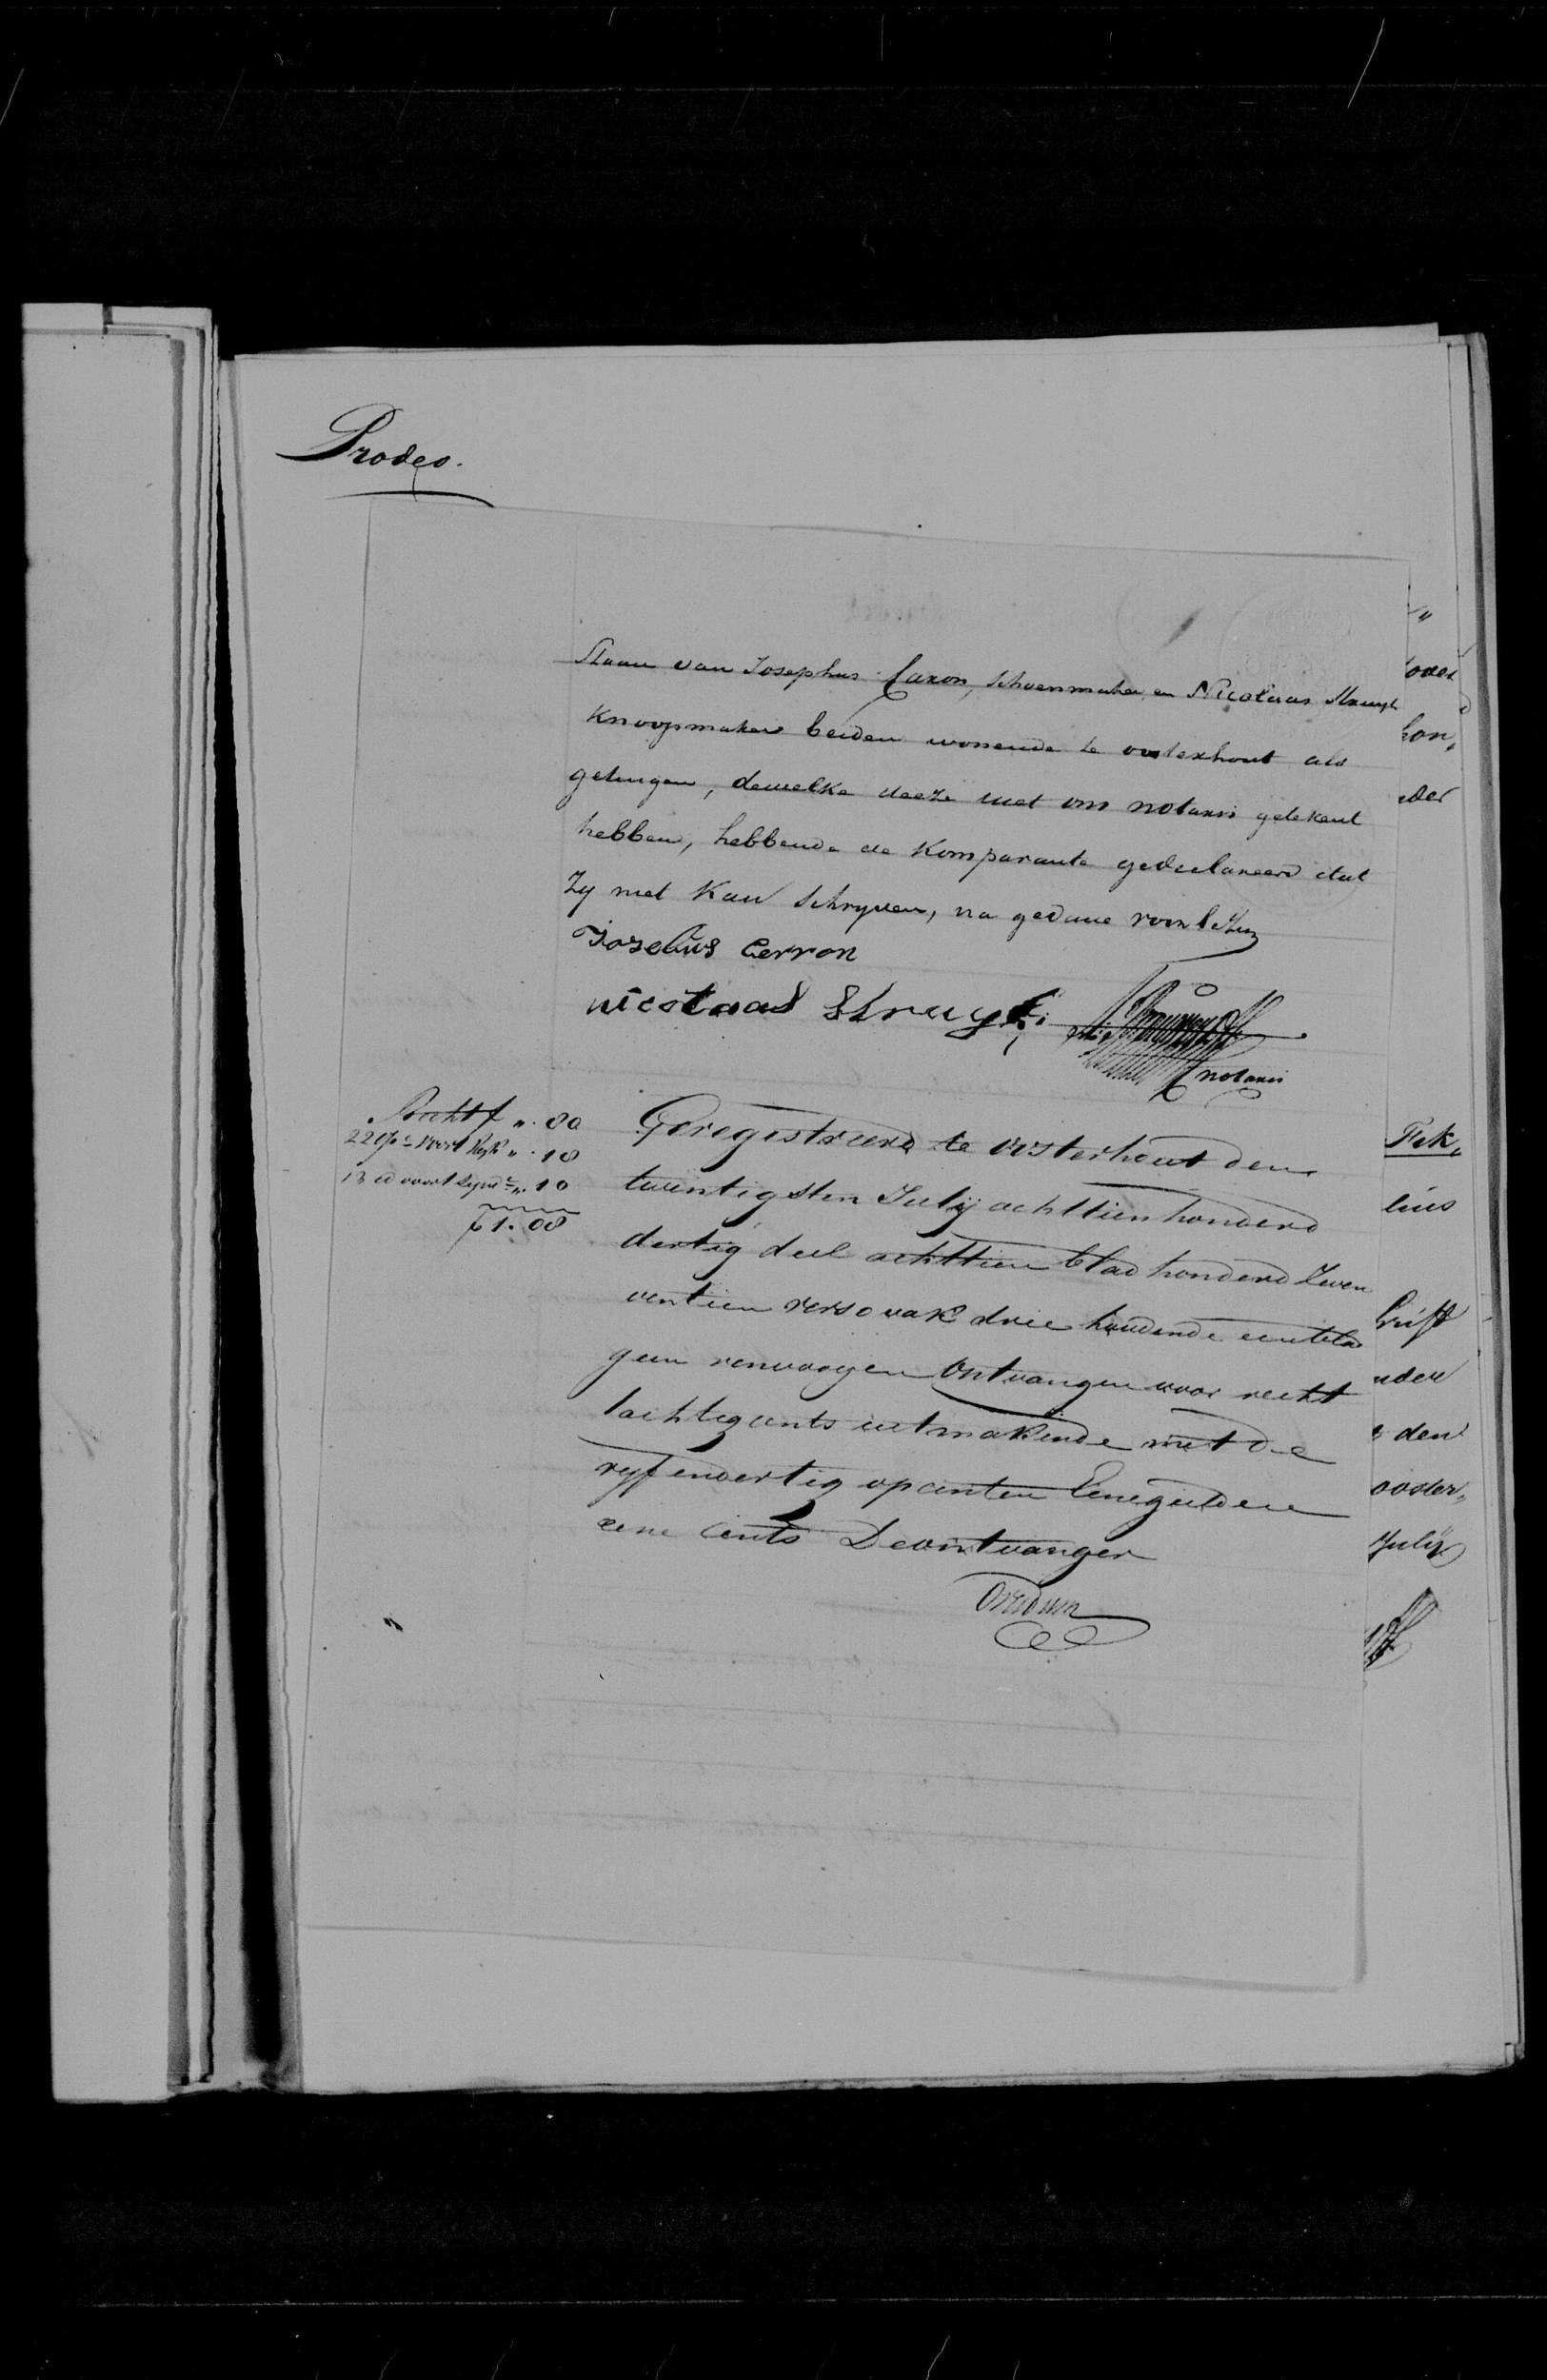 Prodeo.
staan van Josephus Caron, schoenmaker en Nicolaas Struyk
Knoopmaker beiden wonende te oosterhout als
getuigen, dewelke deeze met ons notaris getekent
hebben, hebbende de Komparante gedeclareerd dat
Zy niet Kan Schryven, na gedane voorlezing
Josebus Cerron
nicolaas Struyk
notaris
Recht f ". 80
22 " . 18
13 " . 10
f 1. 08
Geregistreerd te oosterhout den
twintigsten July achttien honderd
dertig deel achttien blad honderd Zeven
entien verso vak drie houdende een blad
geen renvooyen Ontvangen voor recht
tachtig cents uitmakende met de
vyf en dertig opcenten Eene gulden
cents De ontvanger
over
kon,
der
Rek,
lius
brift
nder
den
ooster,,
July